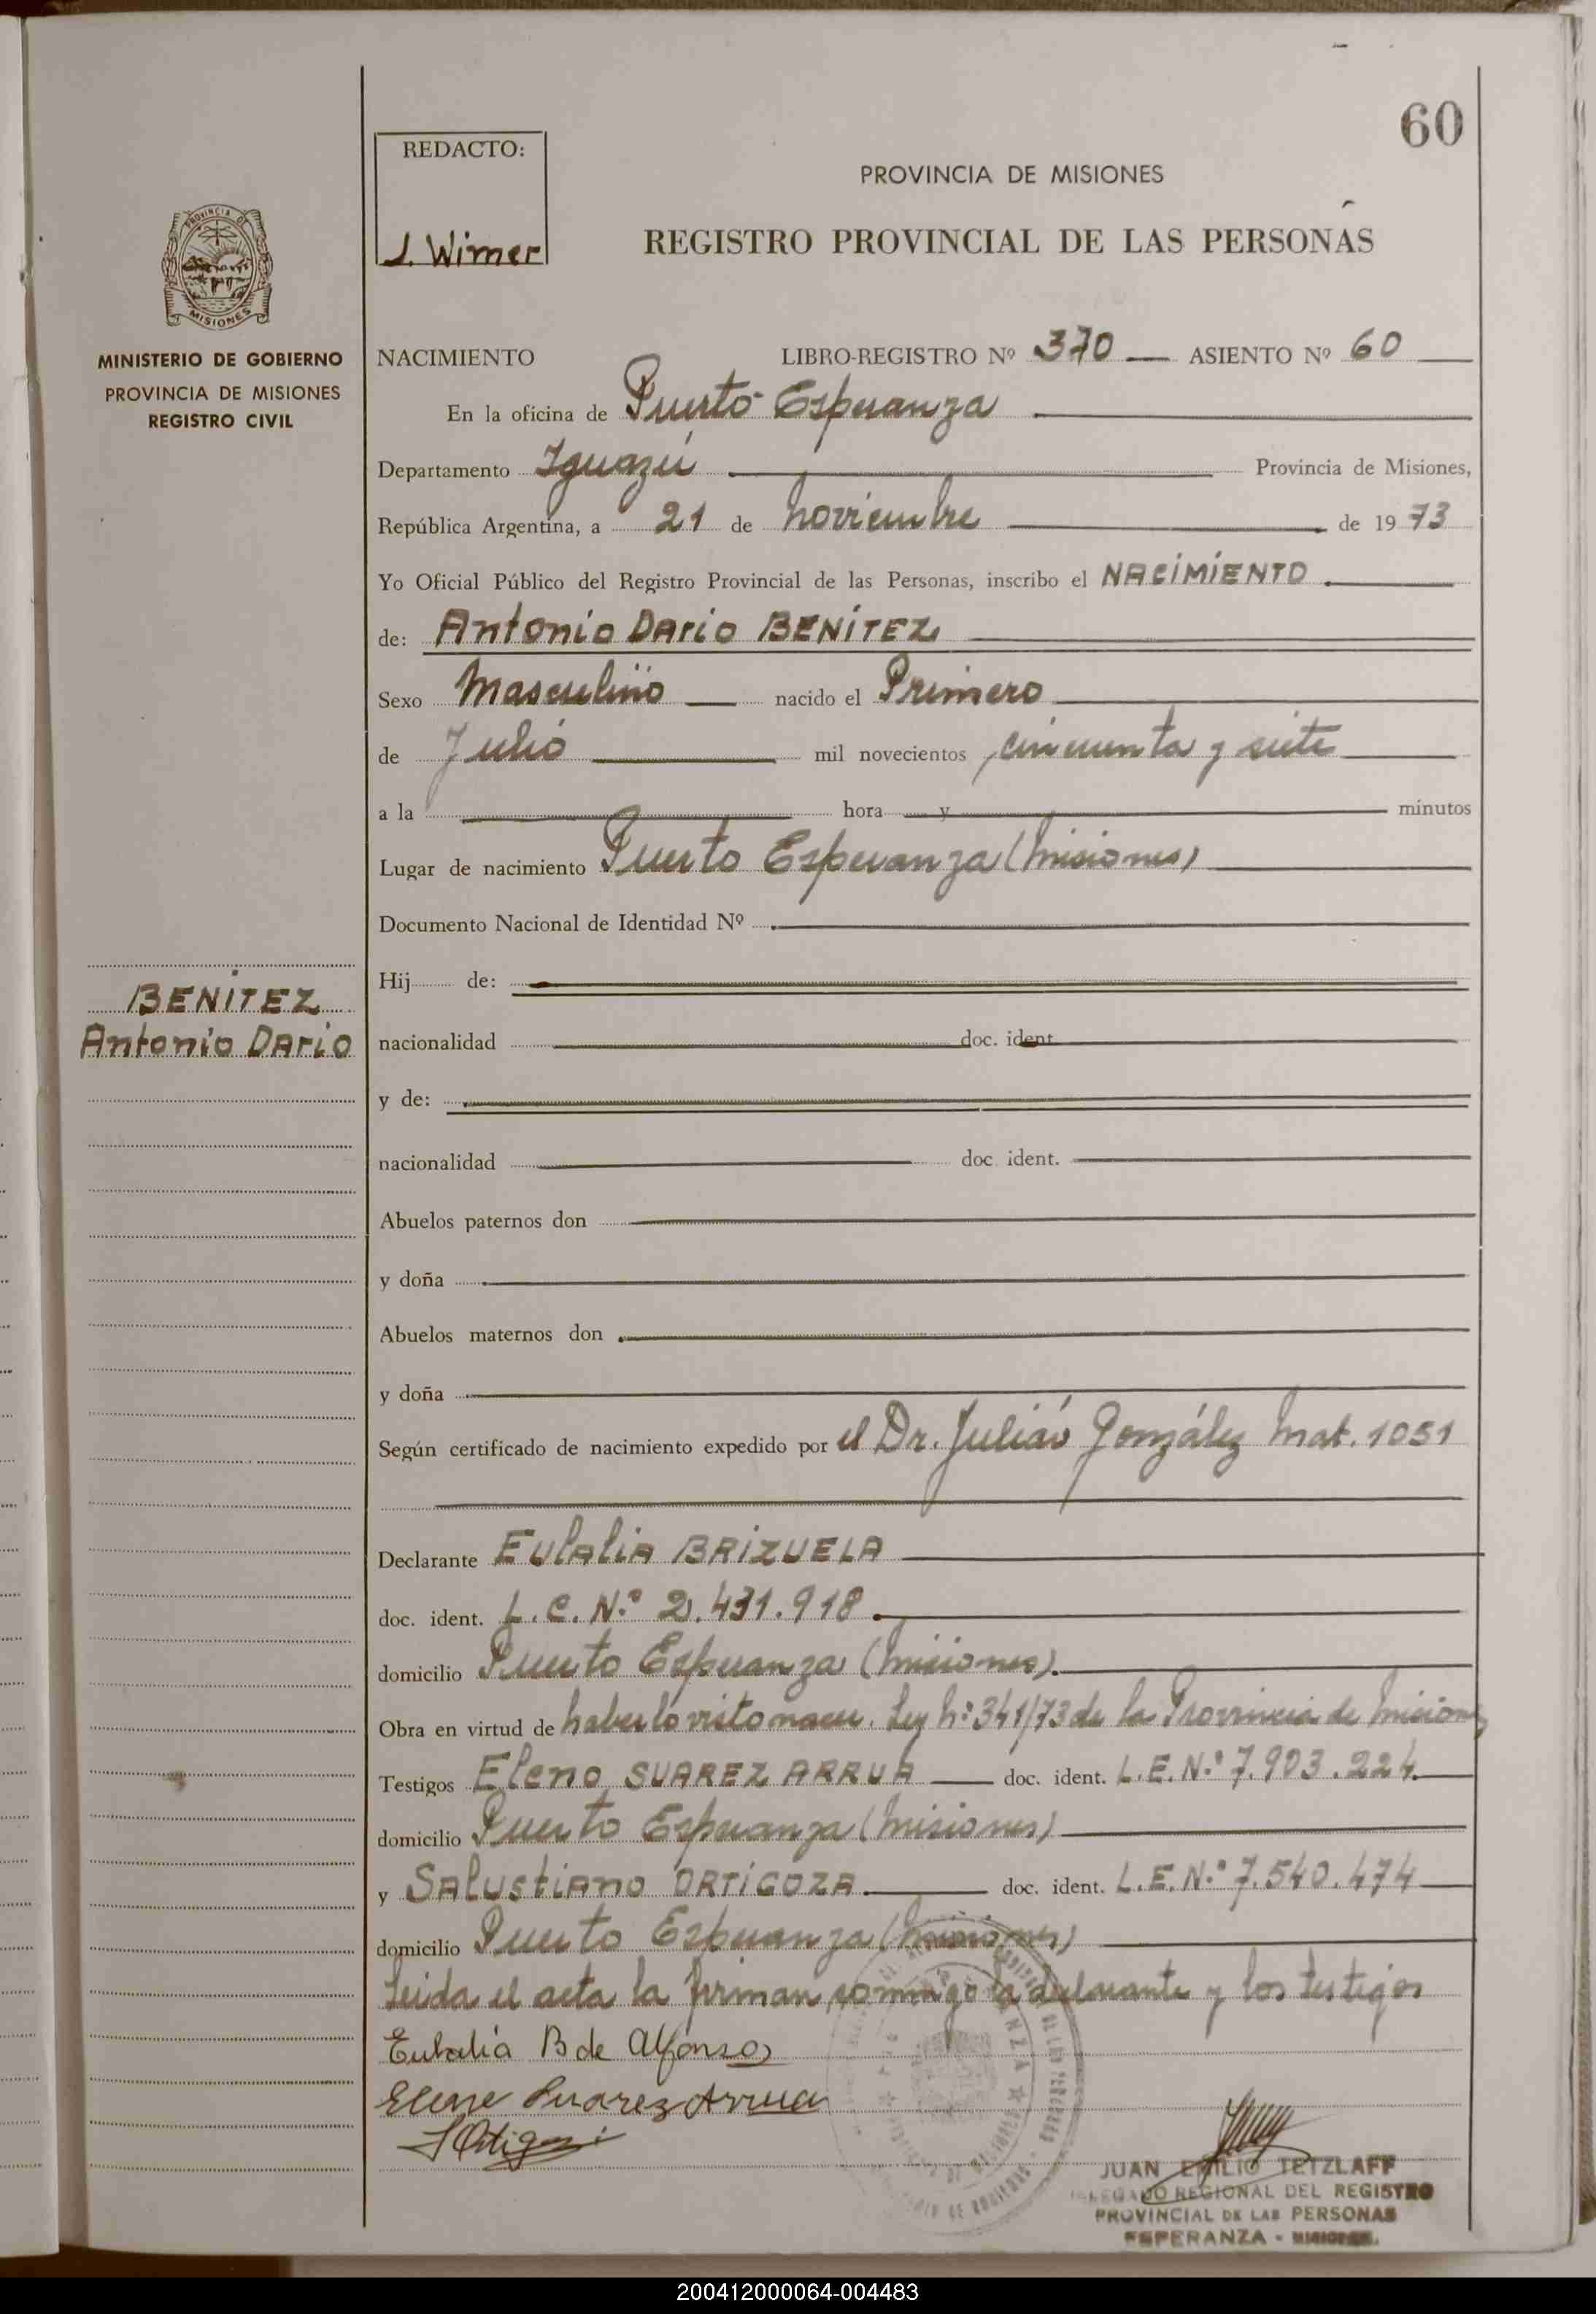 60
REDACTO:
J. Wimer
PROVINCIA DE MISIONES
REGISTRO PROVINCIAL DE LAS PERSONAS
PROVINCIA DE
MISIONES
MINISTERIO DE GOBIERNO
PROVINCIA DE MISIONES
REGISTRO CIVIL
NACIMIENTO LIBRO-REGISTRO Nº 370 ASIENTO Nº 60
En la oficina de Puerto Esperanza
Departamento Iguazú Provincia de Misiones,
República Argentina, a 21 de noviembre de 1973
Yo Oficial Público del Registro Provincial de las Personas, inscribo el NACIMIENTO
de: Antonio Dario BENÍTEZ
Sexo Masculino nacido el Primero
de Julio mil novecientos cincuenta y siete
a la hora y minutos
Lugar de nacimiento Puerto Esperanza (Misiones)
Documento Nacional de Identidad Nº
Hij de:
BENITEZ
Antonio Dario
nacionalidad doc. ident.
y de:
nacionalidad doc. ident.
Abuelos paternos don
y doña
Abuelos maternos don
y doña
Según certificado de nacimiento expedido por el Dr. Julián González Mat. 1051
Declarante Eulalia BRIZUELA
doc. ident. L.C. N.º 2.431.918
domicilio Puerto Esperanza (Misiones).
Obra en virtud de haberlo visto nacer. Ley Nº 341/73 de la Provincia de Misiones
Testigos Eleno SUAREZ ARRUA doc. ident. L.E. N.º 7.903.224.
domicilio Puerto Esperanza (Misiones)
y Salustiano ORTIGOZA doc. ident. L.E. N.º 7.540.474
domicilio Puerto Esperanza (Misiones)
Leida el acta la firman conmigo la declarante y los testigos
Eulalia B de Alfonso
Eleno Suarez Arrua
JUAN EMILIO TETZLAFF
DELEGADO REGIONAL DEL REGISTRO
PROVINCIAL DE LAS PERSONAS
ESPERANZA - MISIONES.
200412000064-004483